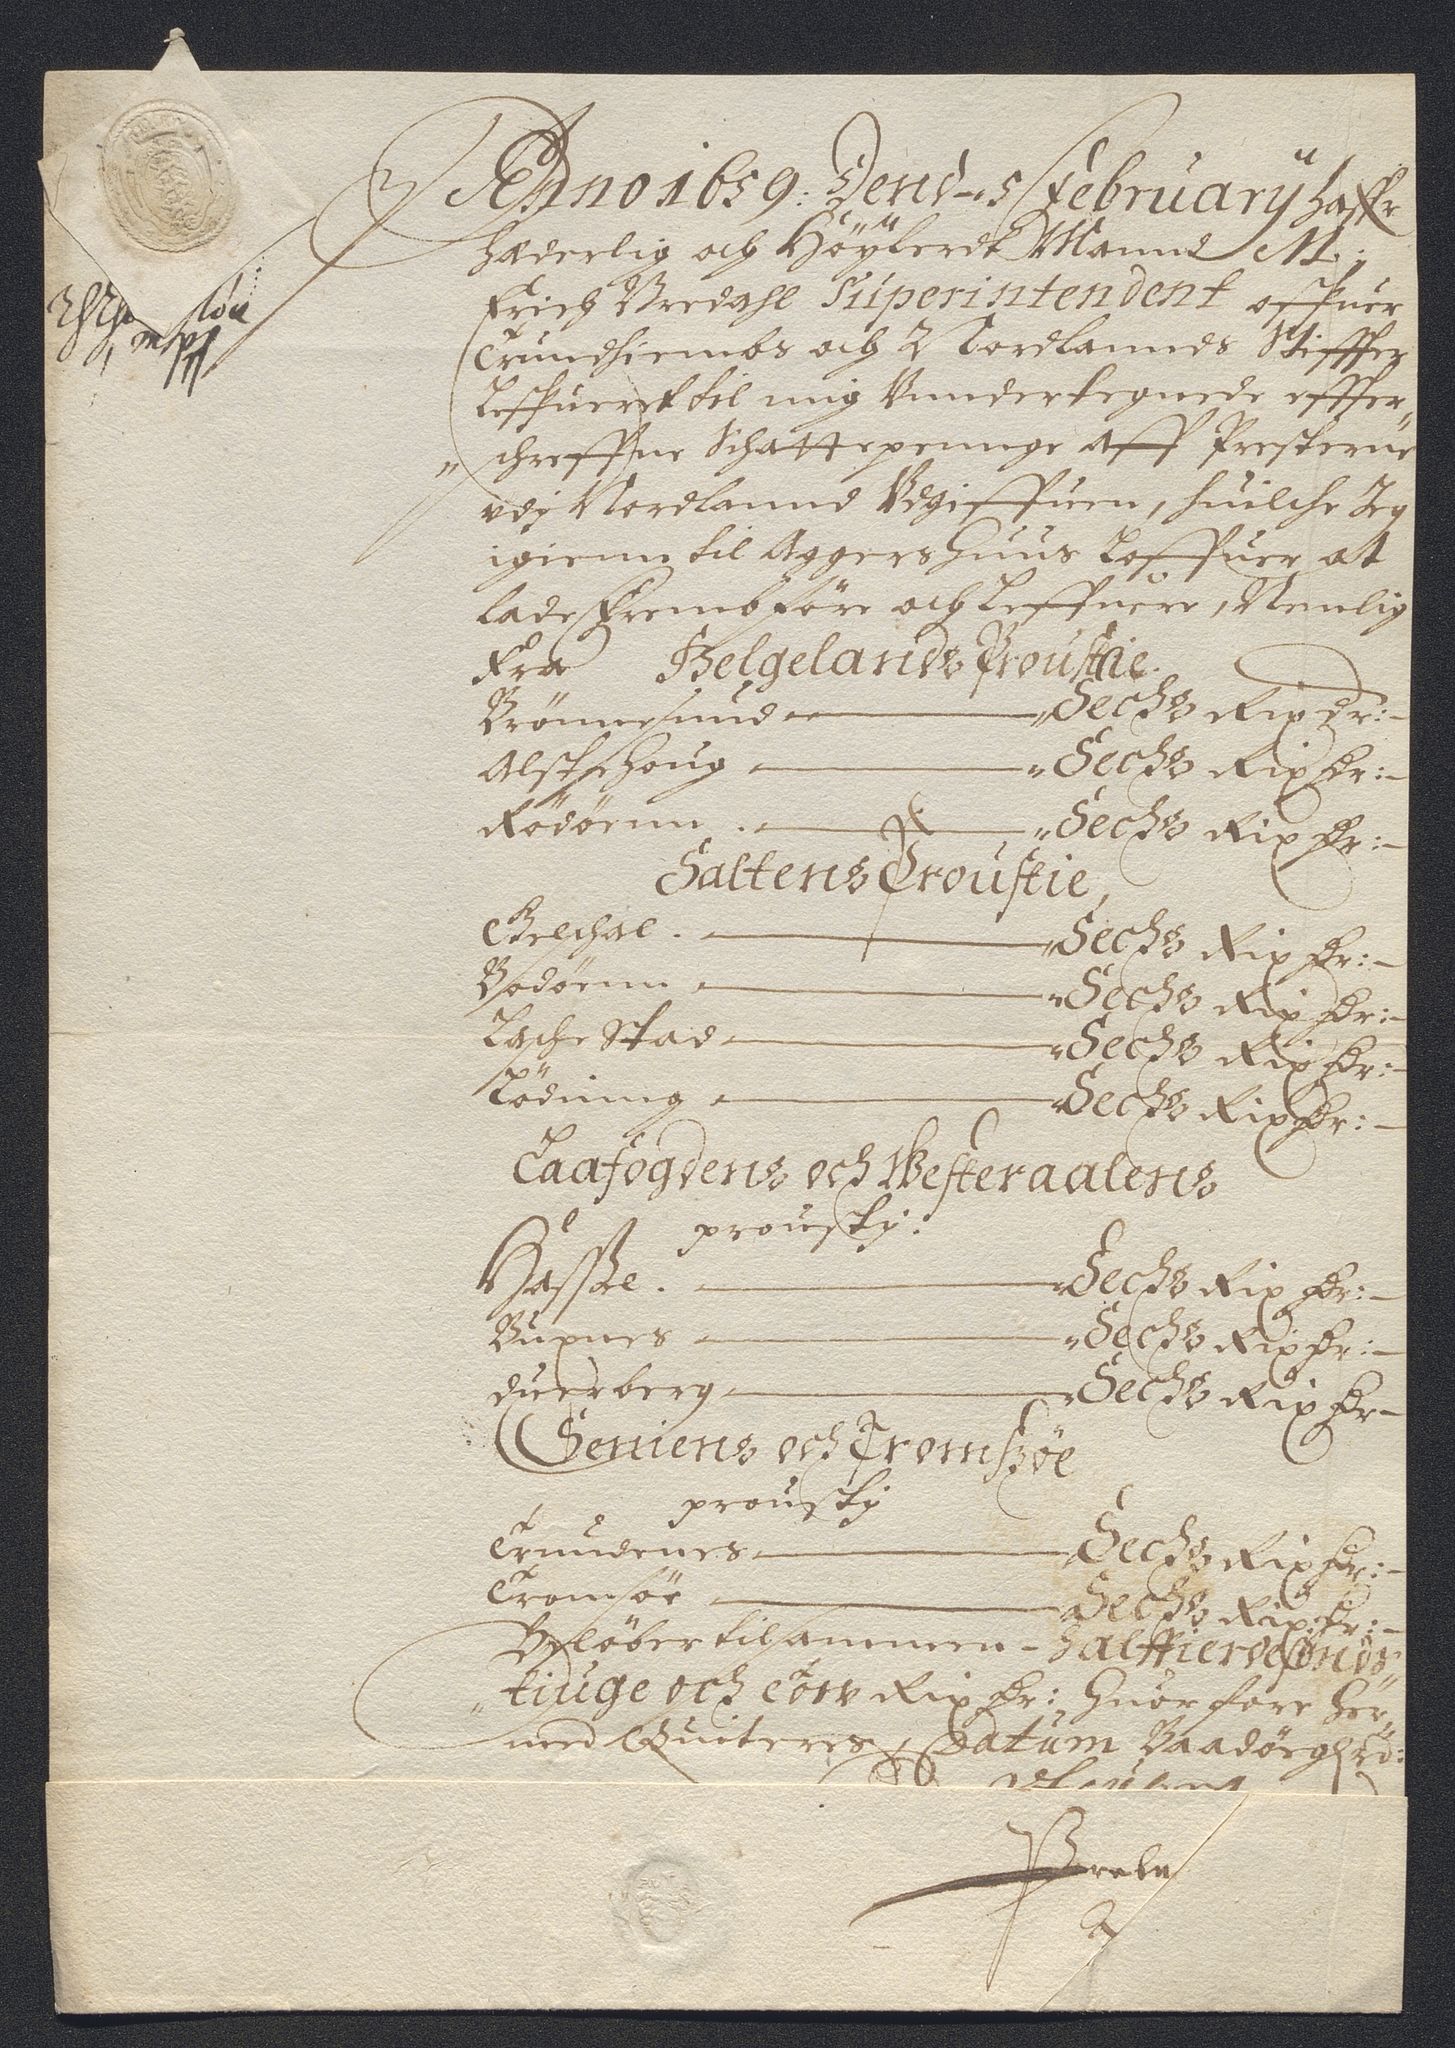 Anno 1659: Dend 5 February haffr
hæderlig och Höÿlerdt Mannd M:
Erich Bredahl Superintendent offuer
Trundhiembs och Nordlannds Stiffter
Leffueret til mig Vndertegnede effter„
„schreffne Schattepennge Aff Presterne
vdj Nordlannd Vdgiffuen, huilche Jeg
igienn til Aggershuus Loffuer at
lade Frembföre och Leffuere, Nemlig
Fra Helgelands Proustie.
Brönnesund „Sechs Rix dr:
Alstehoug „Sechs Rix dr:
Rödöenn „Sechs Rix dr:
Saltens Proustie,
Gilschal. „Sechs Rix dr:
Bodöenn „Sechs Rix dr:
Lasche Stad „Sechs Rix dr:
Lödning „Sechs Rix dr:
Laafogdens och Westeraalens
prousty:
Hassel. „Sechs Rix dr:
Buxnes „Sechs Rix dr:
Öuerberg „Sechs Rix dr
Seniens och Tromszöe
prousty
Trundenes Sechs Rix dr:
Tromsöe „Sechs Rix dr:
Belöber tilsammen halffierdesinds„
„tiuge och toe Rix dr: Huorfore her„
med Quiteres, Datum Baadöegrd:
Vt supra